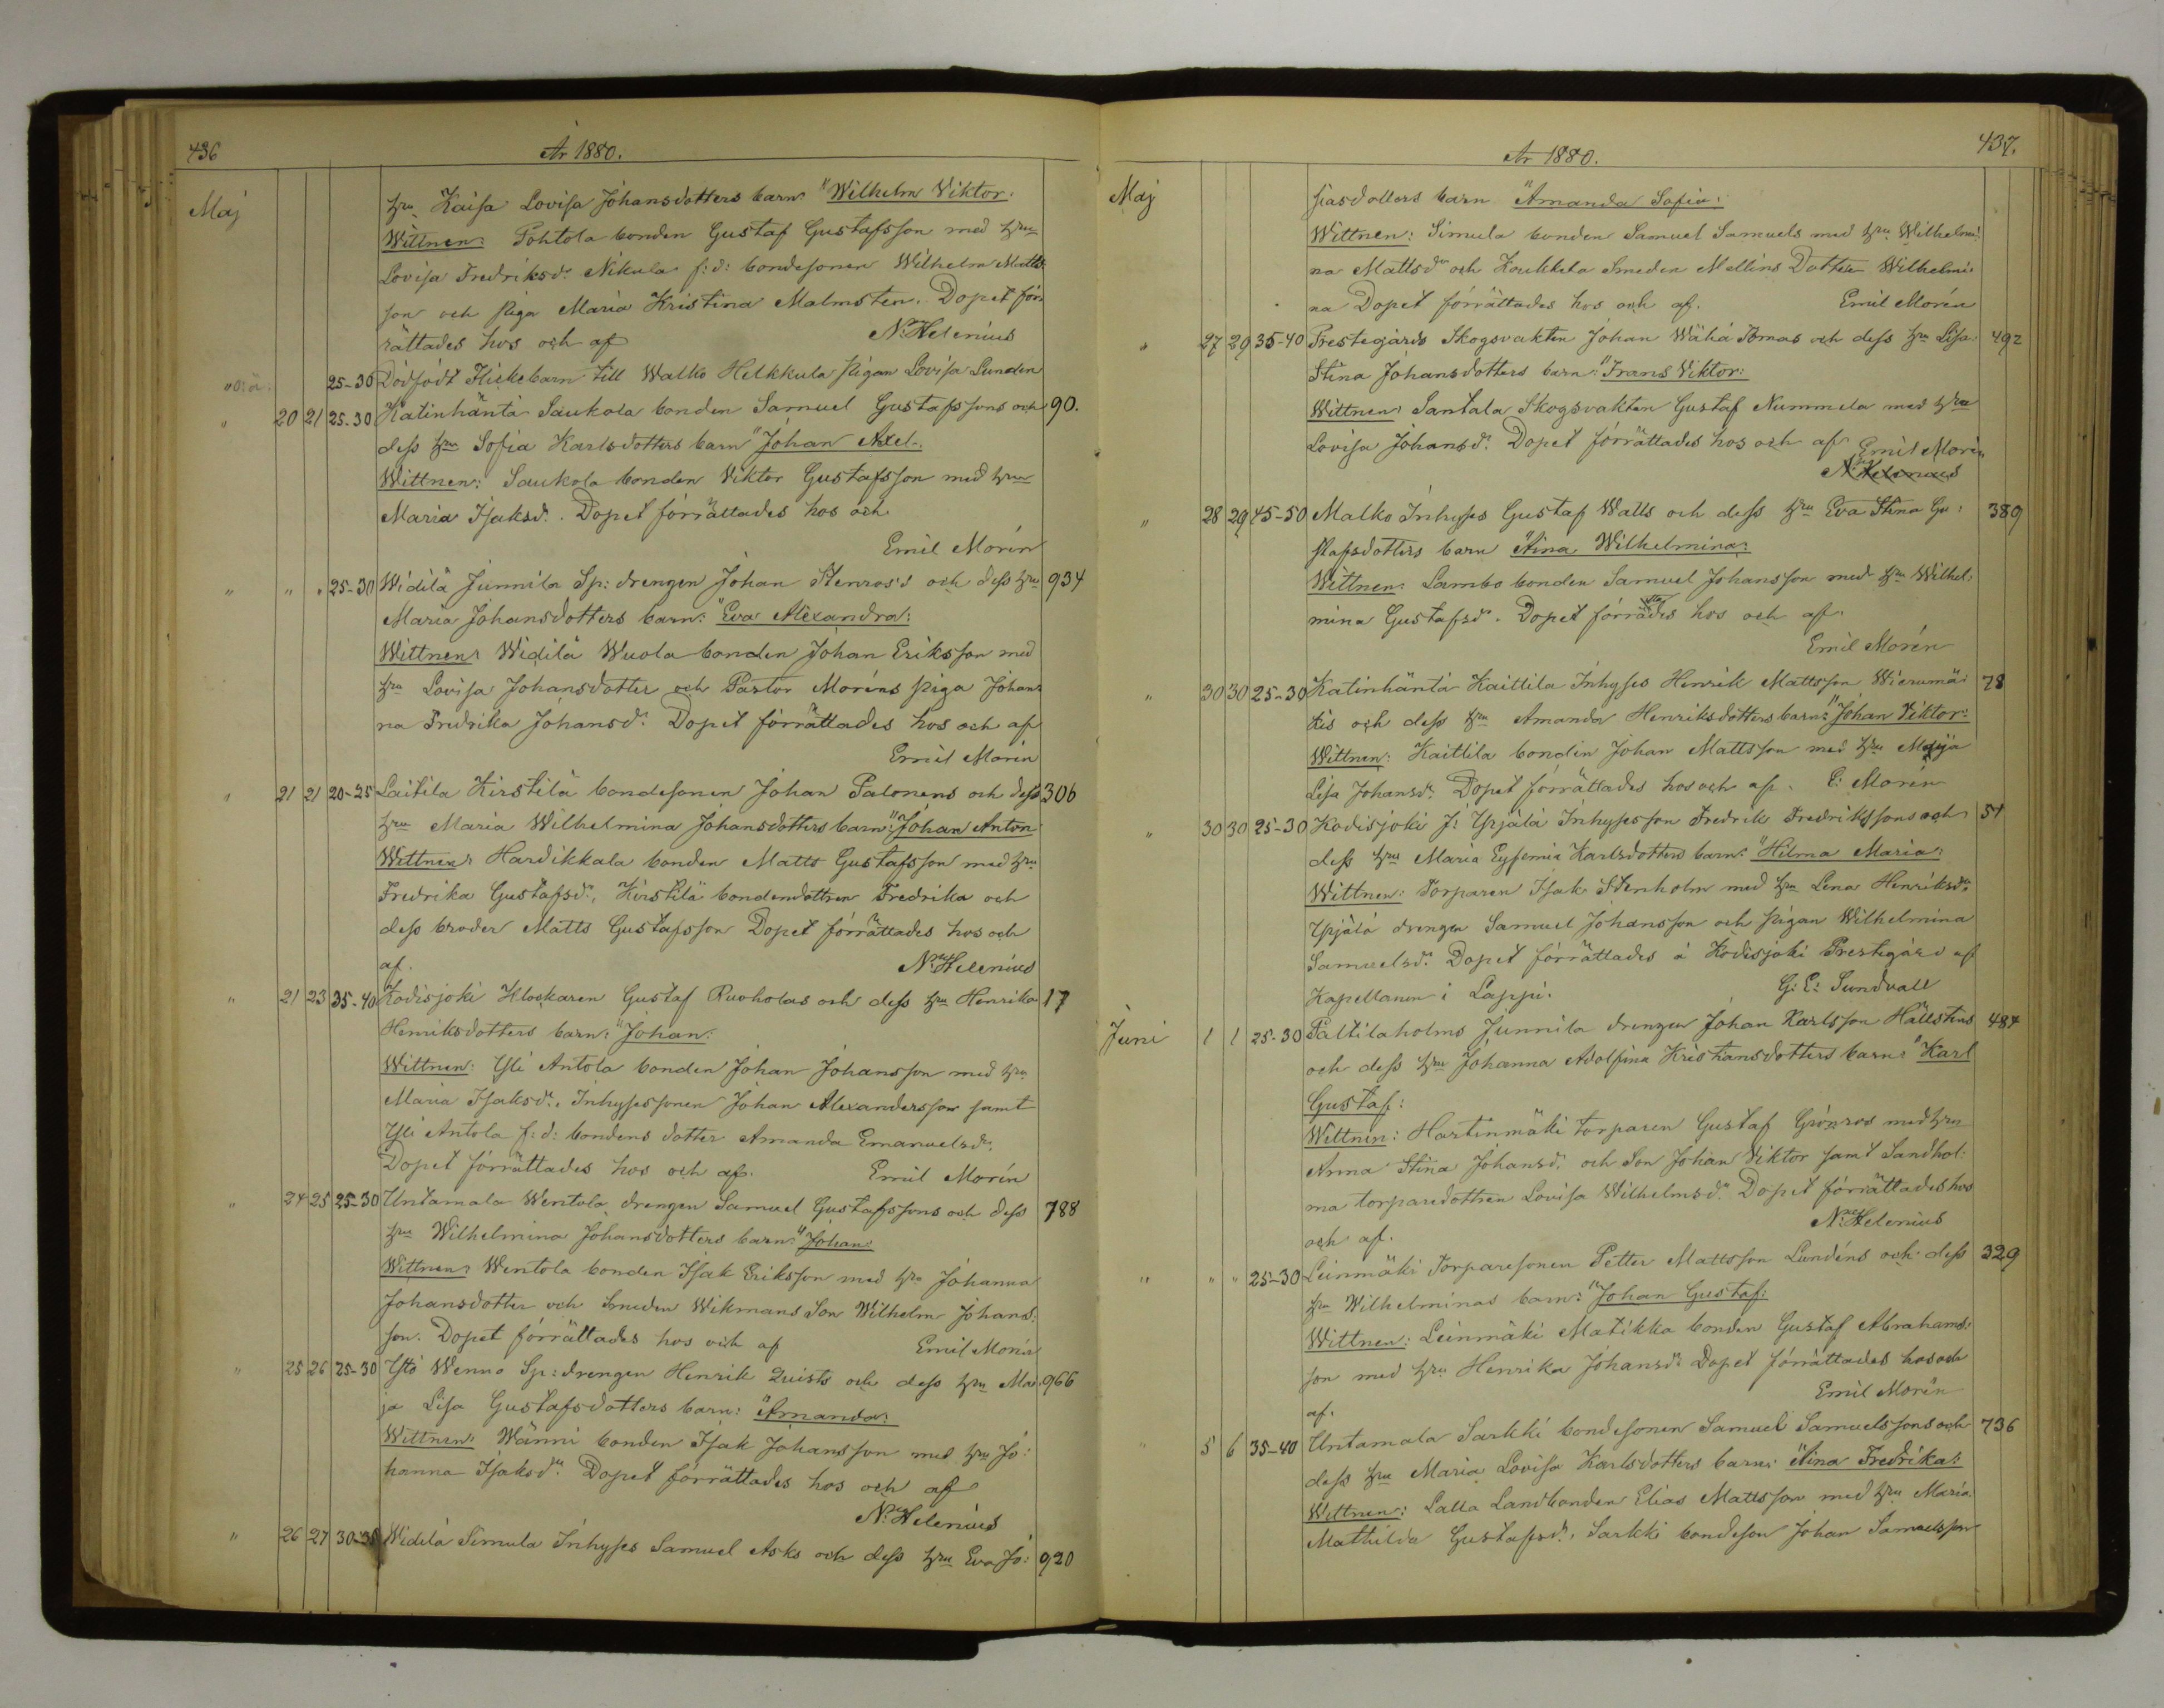 436
År 1880.
Maj
hru Kaisa Lovisa Johansdotters barn "Wilhelm Viktor.
Wittnen: Pohtola bonden Gustaf Gustafsson med hru
Lovisa Fredriksdr Nikula f:d: bondesonen Wilhelm Matts
son och piga Maria Kristina Malmsten. Dopet för:
rättades hos och af N. Helenius
25-30 Dödfödt Flickebarn till Walko Helkkula pigan Lovisa Lunden
" 20 21 25-30 Katinhäntä Saukola bonden Samuel Gustafssons och 90.
dess hru Sofia Karlsdotters barn "Johan Axel.
Wittnen: Saukola bonden Viktor Gustafsson med hru
Maria Isaksdr. Dopet förrättades hos och
Emil Morén
" " " 25-30 Widilä Junnila Sp: drengen Johan Stenros's och dess hru 934
Maria Johansdotters barn: "Eva Alexandra:
Wittnen: Widilä Wuola bonden Johan Eriksson med
hru Lovisa Johansdotter och Pastor Moréns piga Johan:
na Fredrika Johansdr. Dopet förrättades hos och af
Emil Morén
" 21 21 20-25 Laitila Kirstilä bondesonen Johan Palonens och dess 306
hru Maria Wilhelmina Johansdotters barn: "Johan Anton
Wittnen: Hardikkala bonden Matts Gustafsson med hru
Fredrika Gustafsdr, Kirstilä bondendottren Fredrika och
dess broder Matts Gustafsson Dopet förrättades hos och
af. N. Helenius
" 21 23 35-40 Kodisjoki Klockaren Gustaf Ruoholas och dess hru Henrika 17
Henriksdotters barn: "Johan:
Wittnen: Yli Antola bonden Johan Johansson med hru
Maria Isaksdr. Inhysessonen Johan Alexandersson samt
Yli Antola f:d: bondens dotter Amanda Emanuelsdr.
Dopet förrättades hos och af. Emil Morén
" 24 25 25-30 Untamala Wentola drengen Samuel Gustafssons och dess 788
hru Wilhelmina Johansdotters barn: "Johan:
Wittnen: Wentola bonden Isak Eriksson med hru Johanna
Johansdotter och Smeden Wikmans Son Wilhelm Johans:
son. Dopet förrättades hos och af Emil Morén
" 25 26 25-30 Ytö Wenno Sp: drengen Henrik Quists och dess hru Ma: 966
ja Lisa Gustafsdotters barn: "Amanda:
Wittnen: Wänni bonden Isak Johansson med hru Jo:
hanna Isaksdr. Dopet förrättades hos och af
N. Helenius
" 26 27 30-35 Widilä Simula Inhyses Samuel Asks och dess hru Eva Jo: 920
437.
År 1880.
Maj
siasdotters barn "Amanda Sofia:
Wittnen: Simula bonden Samuel Samuels med hru Wilhelmi:
na Mattsdr och Koukkela Smeden Mellins Dotter Wilhelmi:
na Dopet förrättades hos och af. Emil Morén
" 27 29 35-40 Prestegårds Skogsvakten Johan Wähä Tomas och dess hru Lisa 492
Stina Johansdotters barn: "Frans Viktor:
Wittnen: Santala Skogsvakten Gustaf Nummela med hru
Lovisa Johansdr. Dopet förrättades hos och af Emil Morén
N. Helenius
" 28 29 45-50 Malko Inhyses Gustaf Walls och dess hru Eva Stina Gu: 389
stafsdotters barn "Aina Wilhelmina:
Wittnen: Lambo bonden Samuel Johansson med hru Wilhel:
mina Gustafsdr. Dopet förrättades hos och af.
Emil Morén
" 30 30 25-30 Katinhäntä Kaittila Inhyses Henrik Mattsson Wierumä: 78
kis och dess hru Amanda Henriksdotters barn: "Johan Viktor:
Wittnen: Kaittila bonden Johan Mattsson med hru Maja
Lisa Johansdr. Dopet förrättades hos och af. E: Morén
" 30 30 25-30 Kodisjoki J: Ypjälä Inhysesson Fredrik Fredrikssons och 51
dess hru Maria Eufemia Karlsdotters barn: "Hilma Maria:
Wittnen: Torparen Isak Stenholm med hru Lena Henriksdr.
Ypjälä drengen Samuel Johansson och pigan Wilhelmina
Samuelsdr. Dopet förrättades å Kodisjoki Prestegård af
Kapellanen i Lappi. G: E: Sundvall
Juni 1 1 25-30 Paltilaholms Junnila drengen Johan Karlsson Hällstens 484
och dess hru Johanna Adolfina Kristiansdotters barn: "Karl
Gustaf:
Wittnen: Hartinmäki torparen Gustaf Grönros med hru
Anna Stina Johansdr. och Son Johan Viktor samt Sandhol:
ma torparedottren Lovisa Wilhelmsdr. Dopet förrättades hos
och af. N. Helenius
" " " 25-30 Leinmäki Torparesonen Petter Mattsson Lundéns och dess 329
hru Wilhelminas barn: "Johan Gustaf:
Wittnen: Leinmäki Matikka bonden Gustaf Abrahams:
son med hru Henrika Johansdr Dopet förrättades hos och
af. Emil Morén
" 5 6 35-40 Untamala Sarkki bondesonen Samuel Samuelssons och 736
dess hru Maria Lovisa Karlsdotters barn: "Aina Fredrika:
Wittnen: Lalla Landbonden Elias Mattsson med hru Maria
Mathilda Gustafsdr. Sarkki bondeson Johan Samuelsson